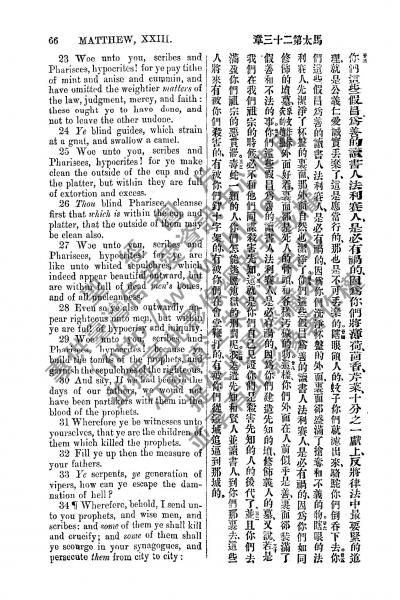 66 MATTHEW, XXIII.
23 Woe unto you, scribes and
Pharisees, hypocrites! for ye pay tithe
of mint and anise and cummin, and
have omitted the weightier matters of
the law, judgment, mercy, and faith:
these ought ye to have done, and
not to leave the other undone.
24 Ye blind guides, which strain
at a gnat, and swallow a camel.
25 Woe unto you, scribes and
Pharisees, hypocrites! for ye make
clean the outside of the cup and of
the platter, but within they are full
of extortion and excess.
26 Thou blind Pharisee, cleanse
first that which is within the cup and
platter, that the outside of them may
be clean also.
27 Woe unto you, scribes and
Pharisees, hypocrites! for ye are
like unto whited sepulchres, which
indeed appear beautiful outward, but
are within full of dead men's bones,
and of all uncleanness.
28 Even so ye also outwardly ap-
pear righteous unto men, but within
ye are full of hypocrisy and iniquity.
29 Woe unto you, scribes and
Pharisees, hypocrites! because ye
build the tombs of the prophets, and
garnish the sepulchres of the righteous,
30 And say, If we had been in the
days of our fathers, we would not
have been partakers with them in the
blood of the prophets.
31 Wherefore ye be witnesses unto
yourselves, that ye are the children of
them which killed the prophets.
32 Fill ye up then the measure of
your fathers.
33 Ye serpents, ye generation of
vipers, how can ye escape the dam-
nation of hell?
34 ¶ Wherefore, behold, I send un-
to you prophets, and wise men, and
scribes: and some of them ye shall kill
and crucify; and some of them shall
ye scourge in your synagogues, and
persecute them from city to city:
馬太第二十三章
你們這些假冒爲善的讀書人法利賽人是必有禍的因爲你們將薄荷茴香芹菜十分之一獻上反將律法中最要緊的道
理就是公義仁愛誠實丟棄了這是應當行的那也是不可丟棄的瞎眼領人的蚊子你們就濾出來駱駝你們倒吞下去你
們這些假冒爲善的讀書人法利賽人是必有禍的因爲你們洗淨杯盤的外面裏面却盛滿了搶奪和不義的物瞎眼的法
利賽人先洗潔淨了杯盤的裏面那外面自然也潔淨了你們這些假冒爲善的讀書人法利賽人是必有禍的因爲你們如同
修飾的墳墓外面好看裏面都是死人的骨頭和各樣污穢的物這樣你們外面在人前似乎是善裏面却裝滿了
假善和不法的事你們這些假冒爲善的讀書人法利賽人是必有禍的因爲你們建造先知的墳修飾義人的墓又說若是
我們在我們祖宗的時候必不和他們同謀殺害先知這就是你們自己見證你們是殺害先知的人的後代了並且你們
滿盈你們祖宗的惡貫罷毒蛇一類的人你們怎能逃脫地獄的刑罰呢我差遣先知和賢人並讀書人到你們那裏去這些
人將來有被你們殺害的有被你們釘十字架的有被你們在會堂鞭打的有被你們從這城追逼到那城的